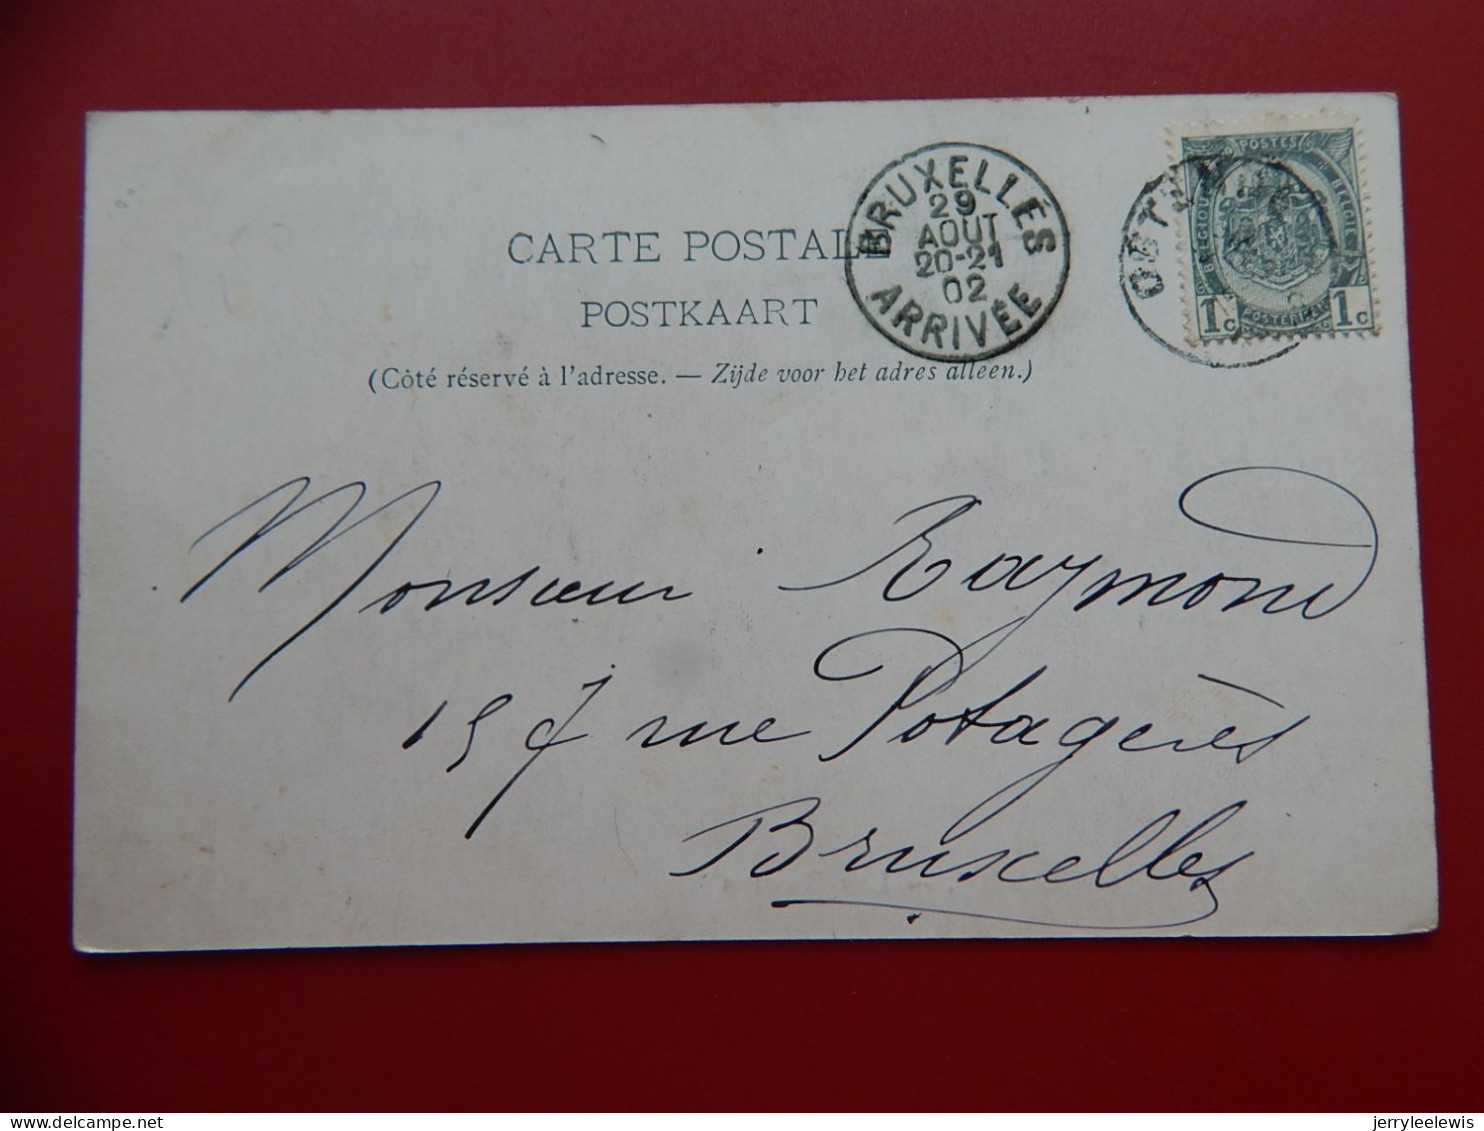 POSTES
BELGIQUE
BELGIË
POSTERIJEN
1c 1c
BRUXELLES
29
AOUT
20-21
02
ARRIVÉE
CARTE POSTALE
POSTKAART
(Côté réservé à l'adresse. — Zijde voor het adres alleen.)
Monsieur Raymond
157 rue Potagères
Bruxelles
delcampe.net
jerryleelewis